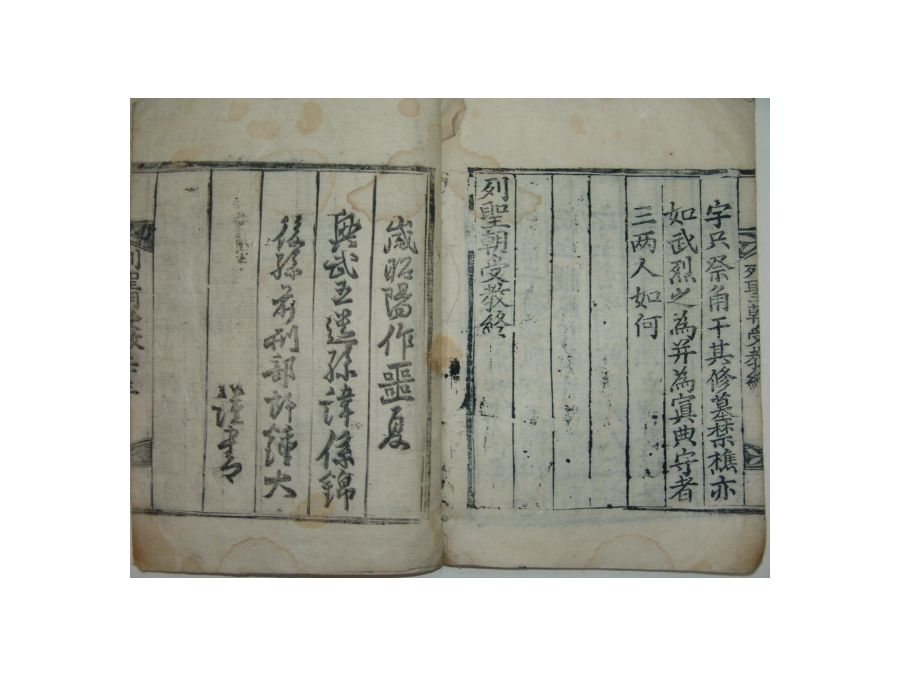 字只祭角干其修墓禁樵亦
如武烈之為并為寘典守者
三两人如何
列聖朝受教終
歲昭陽作噩夏
興武王遠孫諱係錦
後孫前刑部郎鍾大
謹書